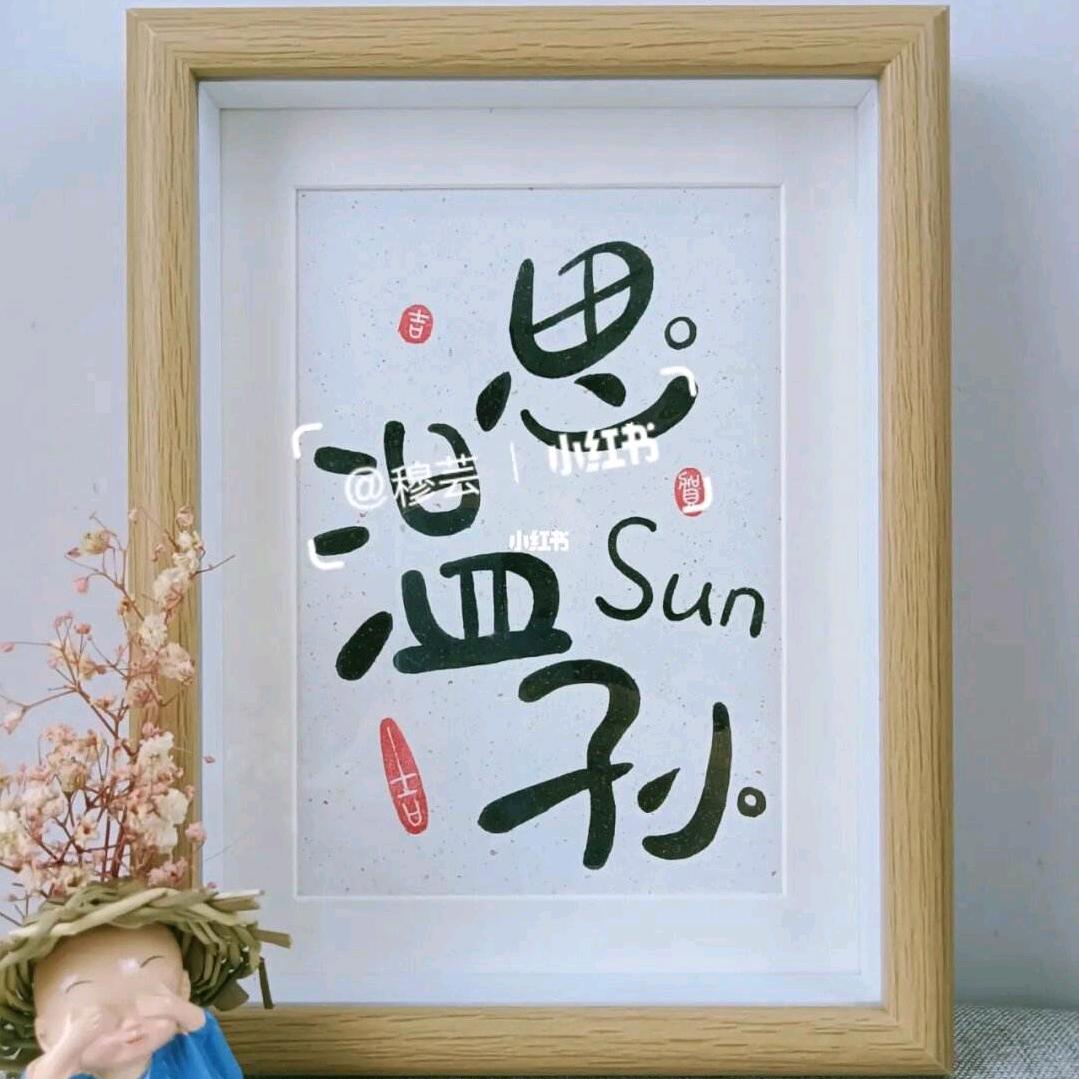 吉
思
温
@穆芸 | 小红书
賀
小红书
Sun
孙
吉